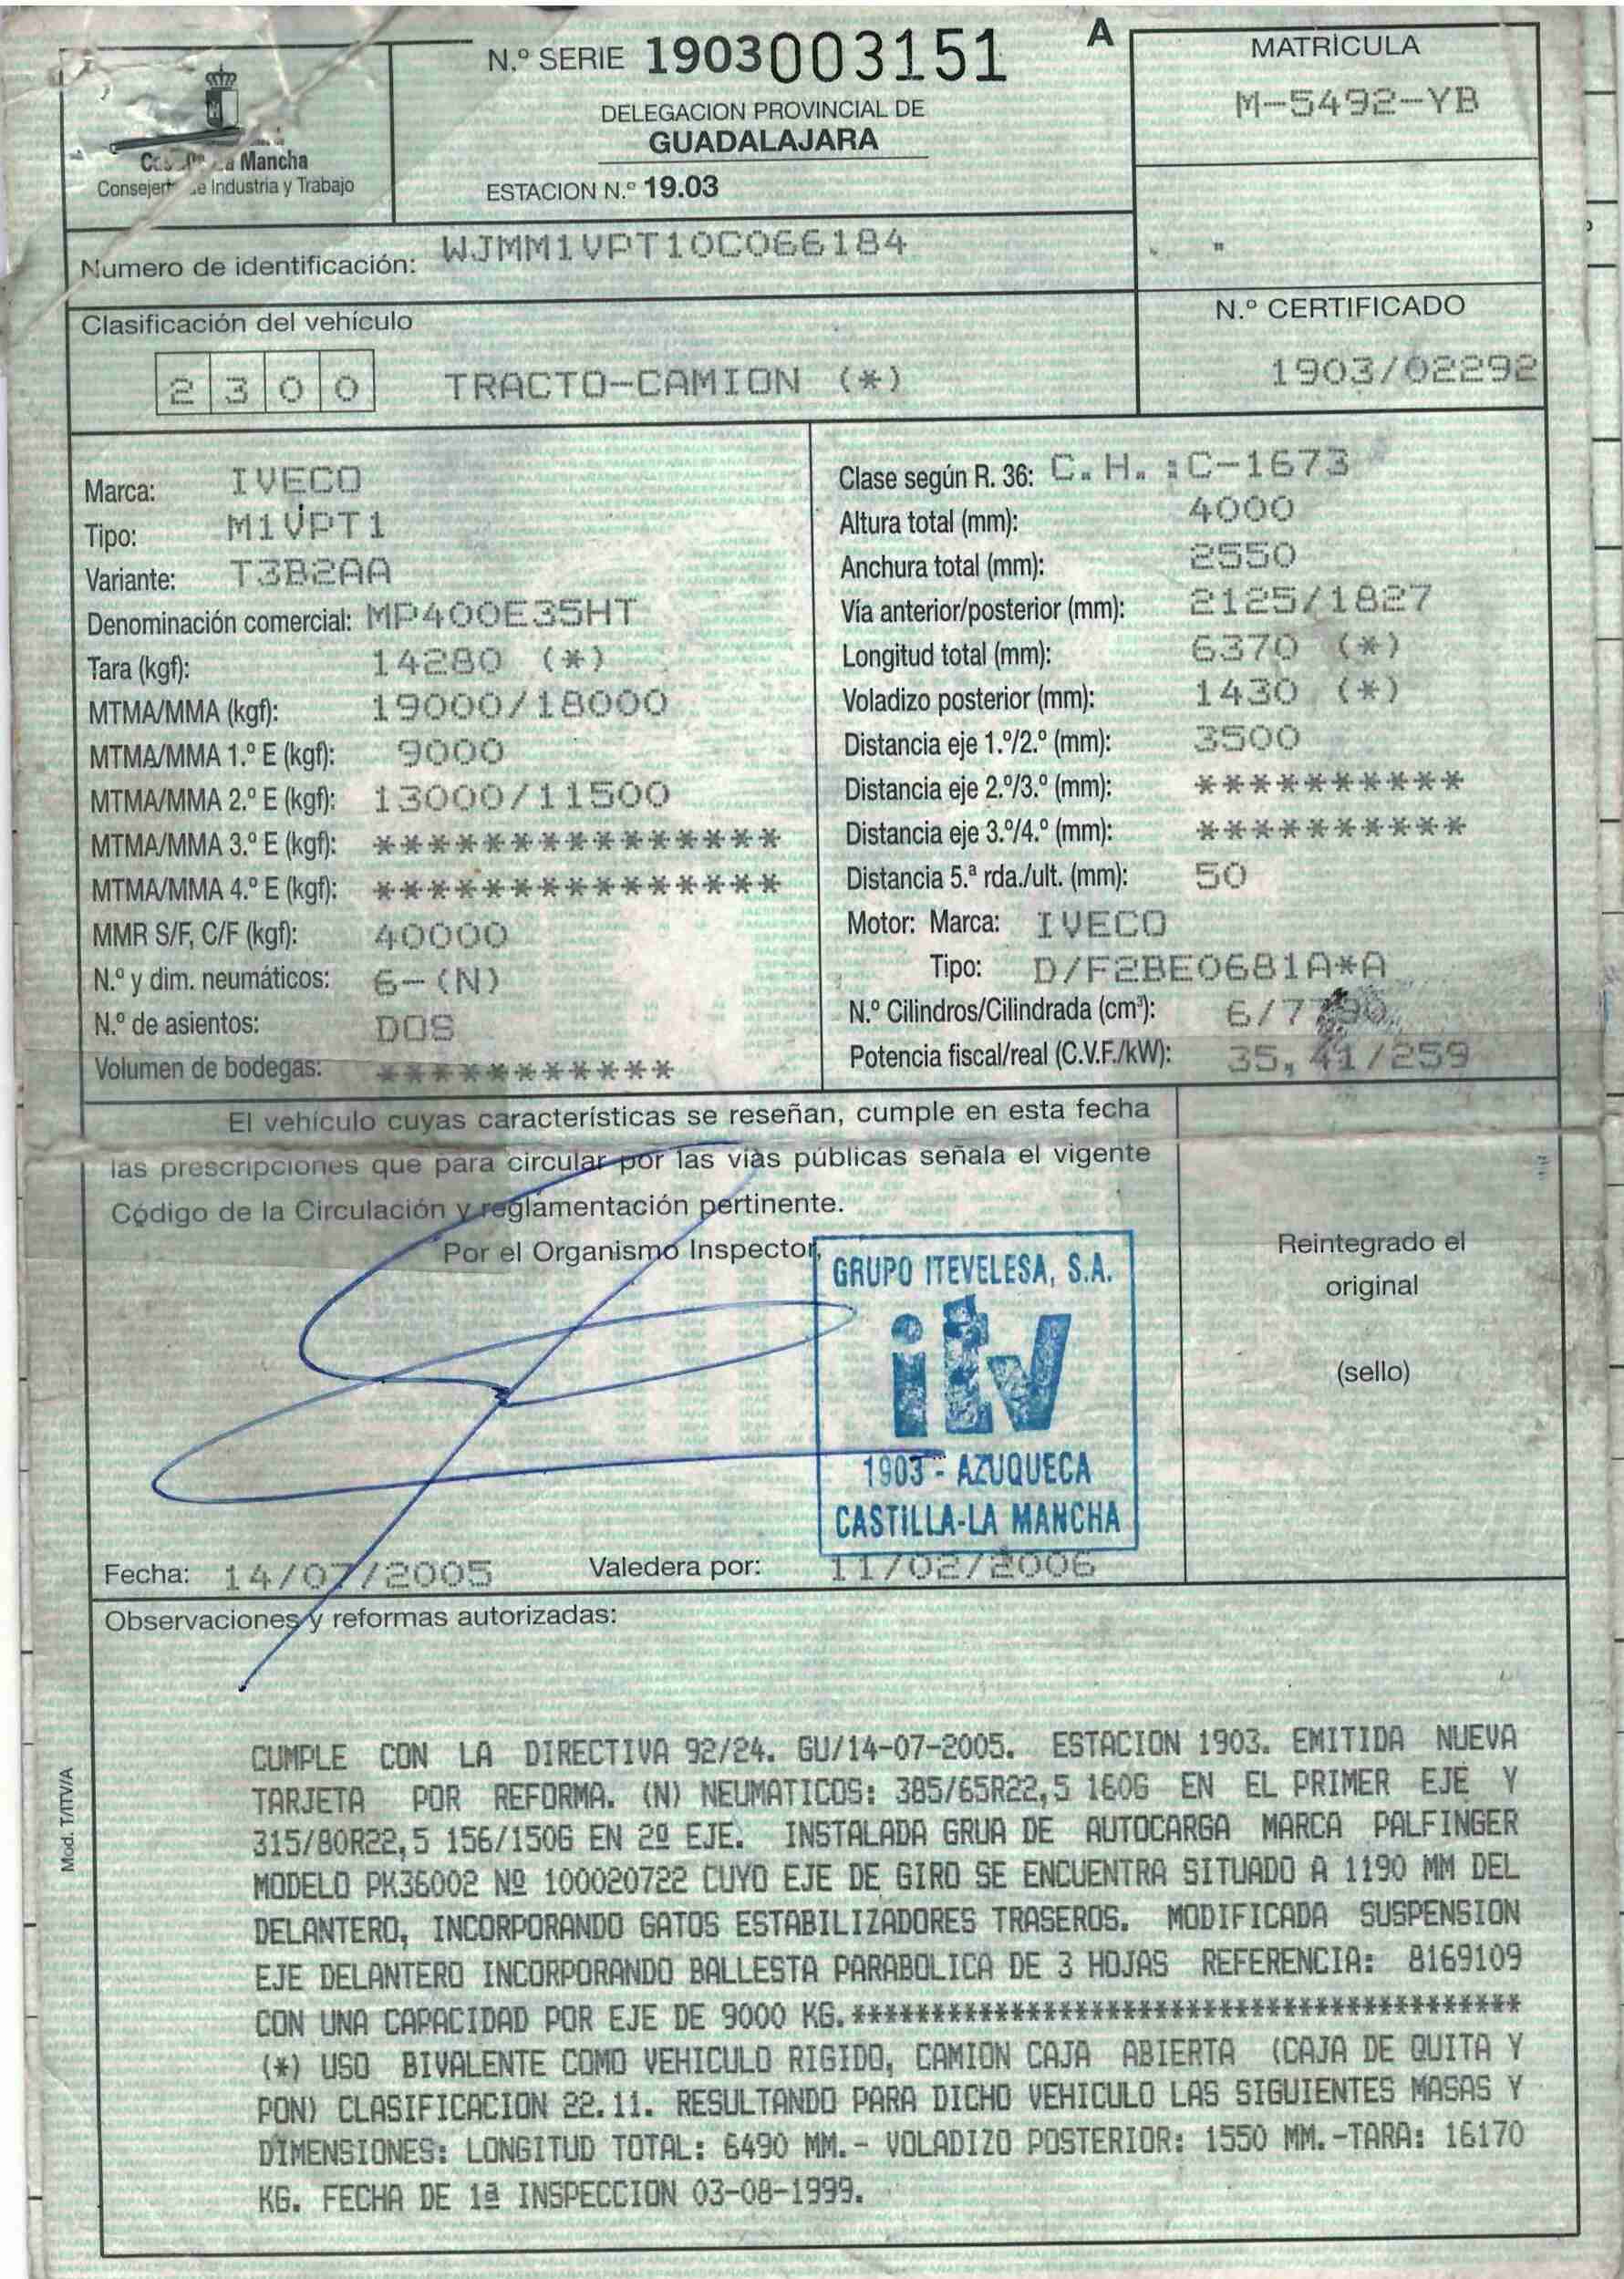 N.º SERIE 1903003151 A
DELEGACION PROVINCIAL DE
GUADALAJARA
ESTACION N.º 19.03
MATRICULA
M-5492-YB
La Mancha
Consejería de Industria y Trabajo
Numero de identificación: WJMM1VPT10C066184
Clasificación del vehículo
2 3 0 0 TRACTO-CAMION (*)
N.º CERTIFICADO
1903/02292
Marca: IVECO
Tipo: M1VPT1
Variante: T3B2AA
Denominación comercial: MP400E35HT
Tara (kgf): 14280 (*)
MTMA/MMA (kgf): 19000/18000
MTMA/MMA 1.º E (kgf): 9000
MTMA/MMA 2.º E (kgf): 13000/11500
MTMA/MMA 3.º E (kgf): ***************
MTMA/MMA 4.º E (kgf): ***************
MMR S/F, C/F (kgf): 40000
N.º y dim. neumáticos: 6-(N)
N.º de asientos: DOS
Volumen de bodegas: ***********
Clase según R. 36: C.H.:C-1673
Altura total (mm): 4000
Anchura total (mm): 2550
Vía anterior/posterior (mm): 2125/1827
Longitud total (mm): 6370 (*)
Voladizo posterior (mm): 1430 (*)
Distancia eje 1.º/2.º (mm): 3500
Distancia eje 2.º/3.º (mm): **********
Distancia eje 3.º/4.º (mm): **********
Distancia 5.ª rda./ult. (mm): 50
Motor: Marca: IVECO
Tipo: D/F2BE0681A*A
N.º Cilindros/Cilindrada (cm³):
Potencia fiscal/real (C.V.F./kW): 35,41/259
El vehículo cuyas características se reseñan, cumple en esta fecha
las prescripciones que para circular por las vias públicas señala el vigente
Código de la Circulación y reglamentación pertinente.
Por el Organismo Inspector,
GRUPO ITEVELESA, S.A.
itv
1903 - AZUQUECA
CASTILLA-LA MANCHA
Reintegrado el
original
(sello)
Fecha: 14/07/2005 Valedera por: 11/02/2006
Observaciones y reformas autorizadas:
CUMPLE CON LA DIRECTIVA 92/24. GU/14-07-2005. ESTACION 1903. EMITIDA NUEVA
TARJETA POR REFORMA. (N) NEUMATICOS: 385/65R22,5 160G EN EL PRIMER EJE Y
315/80R22,5 156/150G EN 2º EJE. INSTALADA GRUA DE AUTOCARGA MARCA PALFINGER
MODELO PK36002 Nº 100020722 CUYO EJE DE GIRO SE ENCUENTRA SITUADO A 1190 MM DEL
DELANTERO, INCORPORANDO GATOS ESTABILIZADORES TRASEROS. MODIFICADA SUSPENSION
EJE DELANTERO INCORPORANDO BALLESTA PARABOLICA DE 3 HOJAS REFERENCIA: 8169109
CON UNA CAPACIDAD POR EJE DE 9000 KG.******************************************
(*) USO BIVALENTE COMO VEHICULO RIGIDO, CAMION CAJA ABIERTA (CAJA DE QUITA Y
PON) CLASIFICACION 22.11. RESULTANDO PARA DICHO VEHICULO LAS SIGUIENTES MASAS Y
DIMENSIONES: LONGITUD TOTAL: 6490 MM.- VOLADIZO POSTERIOR: 1550 MM.-TARA: 16170
KG. FECHA DE 1ª INSPECCION 03-08-1999.
Mod. T/ITV/A